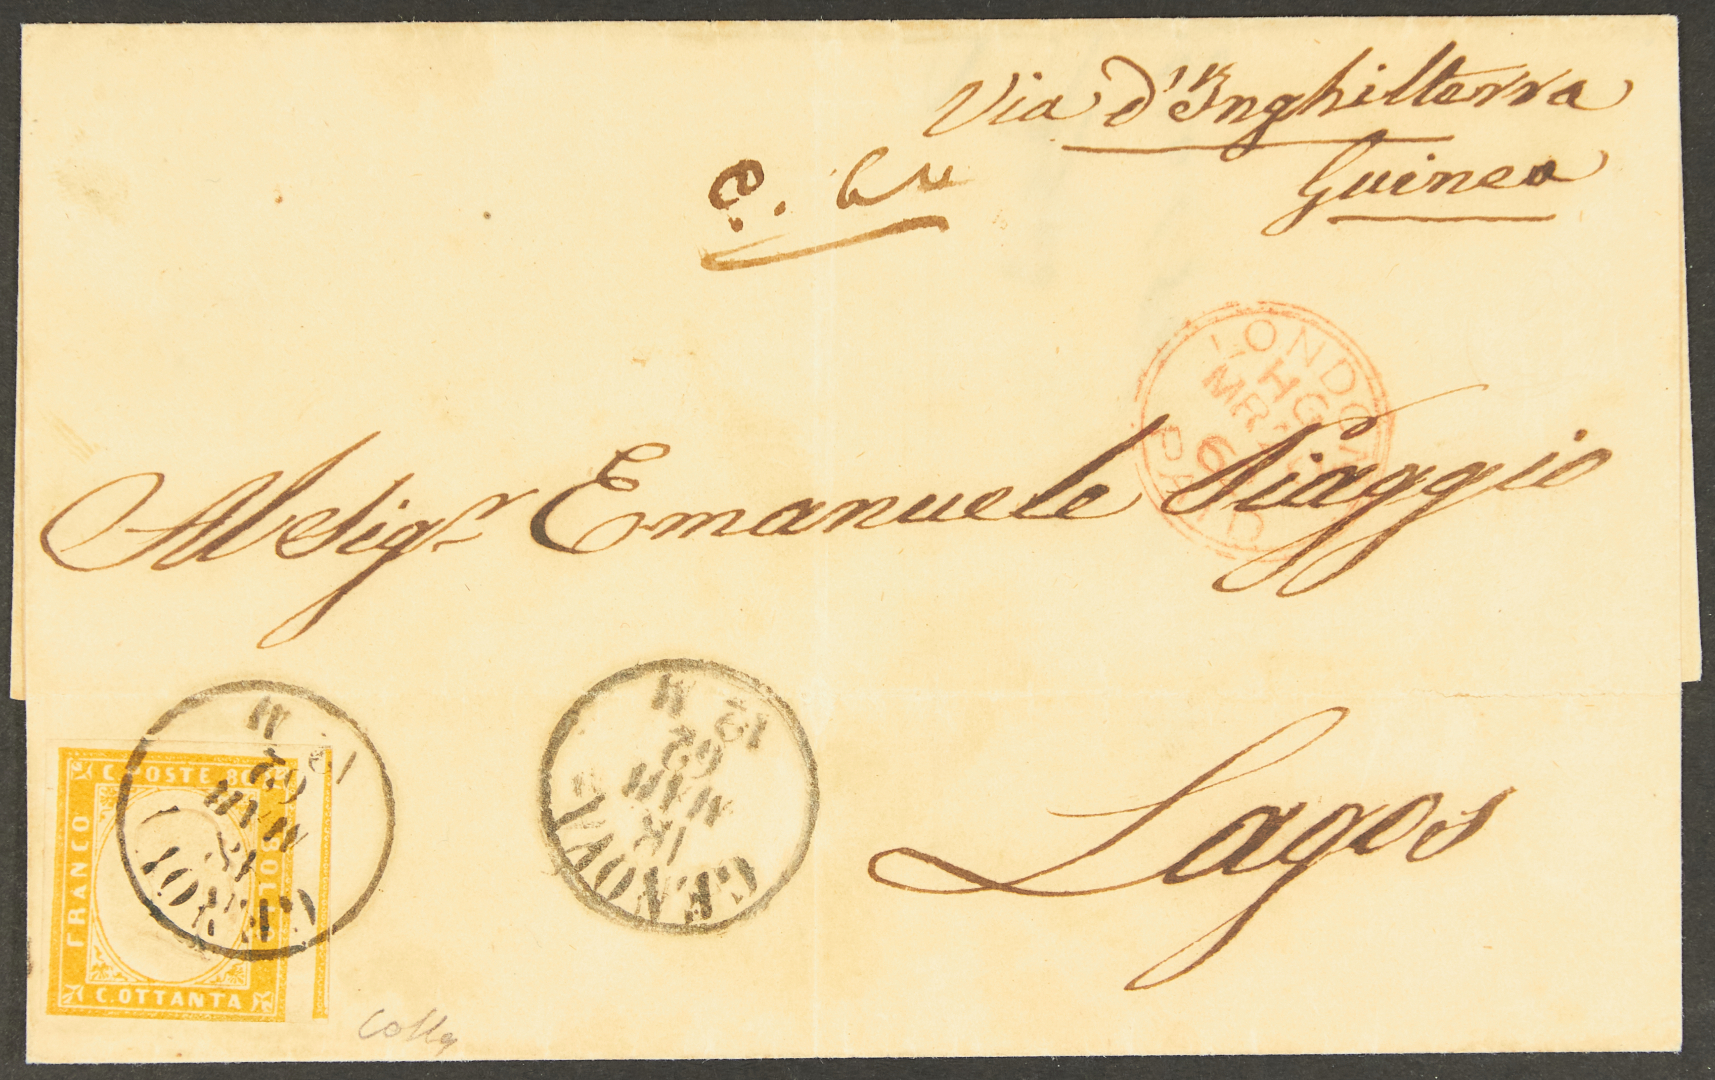 Via d'Inghilterra
Guinea
LONDON
HG
MR
62
PAID
Al Sigr. Emanuele Piaggio
Lagos
GENOVA
17
MAR
62
12 M
GENOVA
17
MAR
62
12 M
C. POSTE 80
FRANCO
BOLLO
C. OTTANTA
Colla